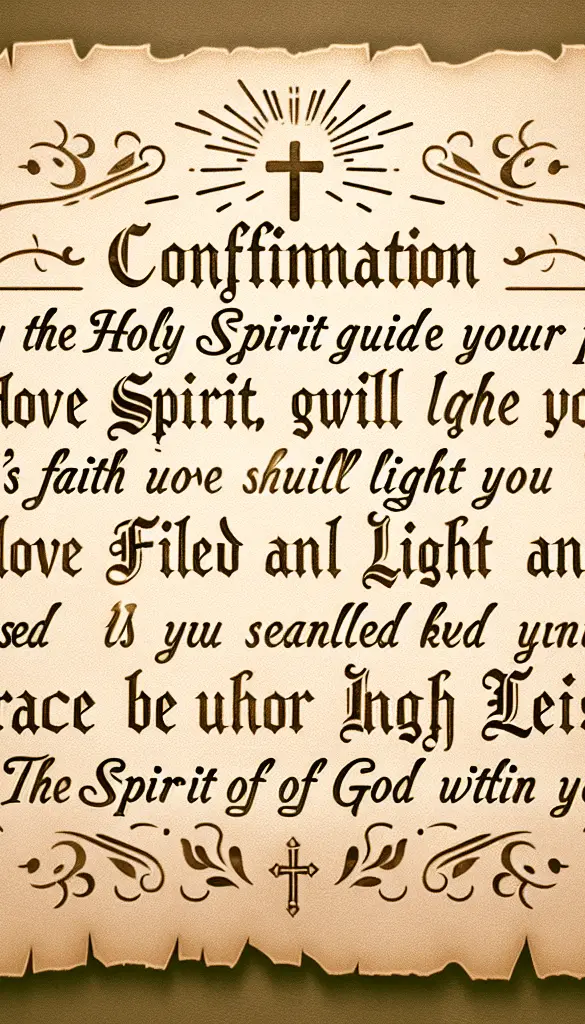 Conffinnation
the Holy Spirit guide youur
love Spirit, gwill lghe yo
's faith uove shuill light you
love Filed anl Light an
sed is yuu seanlled ked yin
race be uhor Ingh Leis
The Spirit of of God wtfin yo